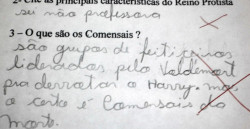 2- Cite as principais características do Reino Protista
sei não professora
3 – O que são os Comensais ?
são grupos de feiticeiros
lideradas pelo Valdemort
pra derrotar o Harry, mas
o certo é Comensais da
Morte.